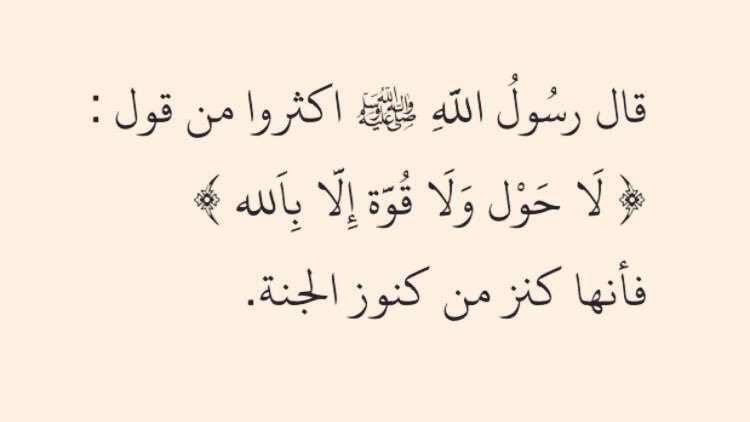 قال رسُولُ اللّهِ ﷺ اكثروا من قول :
﴿ لَا حَوْل وَلَا قُوّة إِلّا بِاَلله ﴾
فأنها كنز من كنوز الجنة.